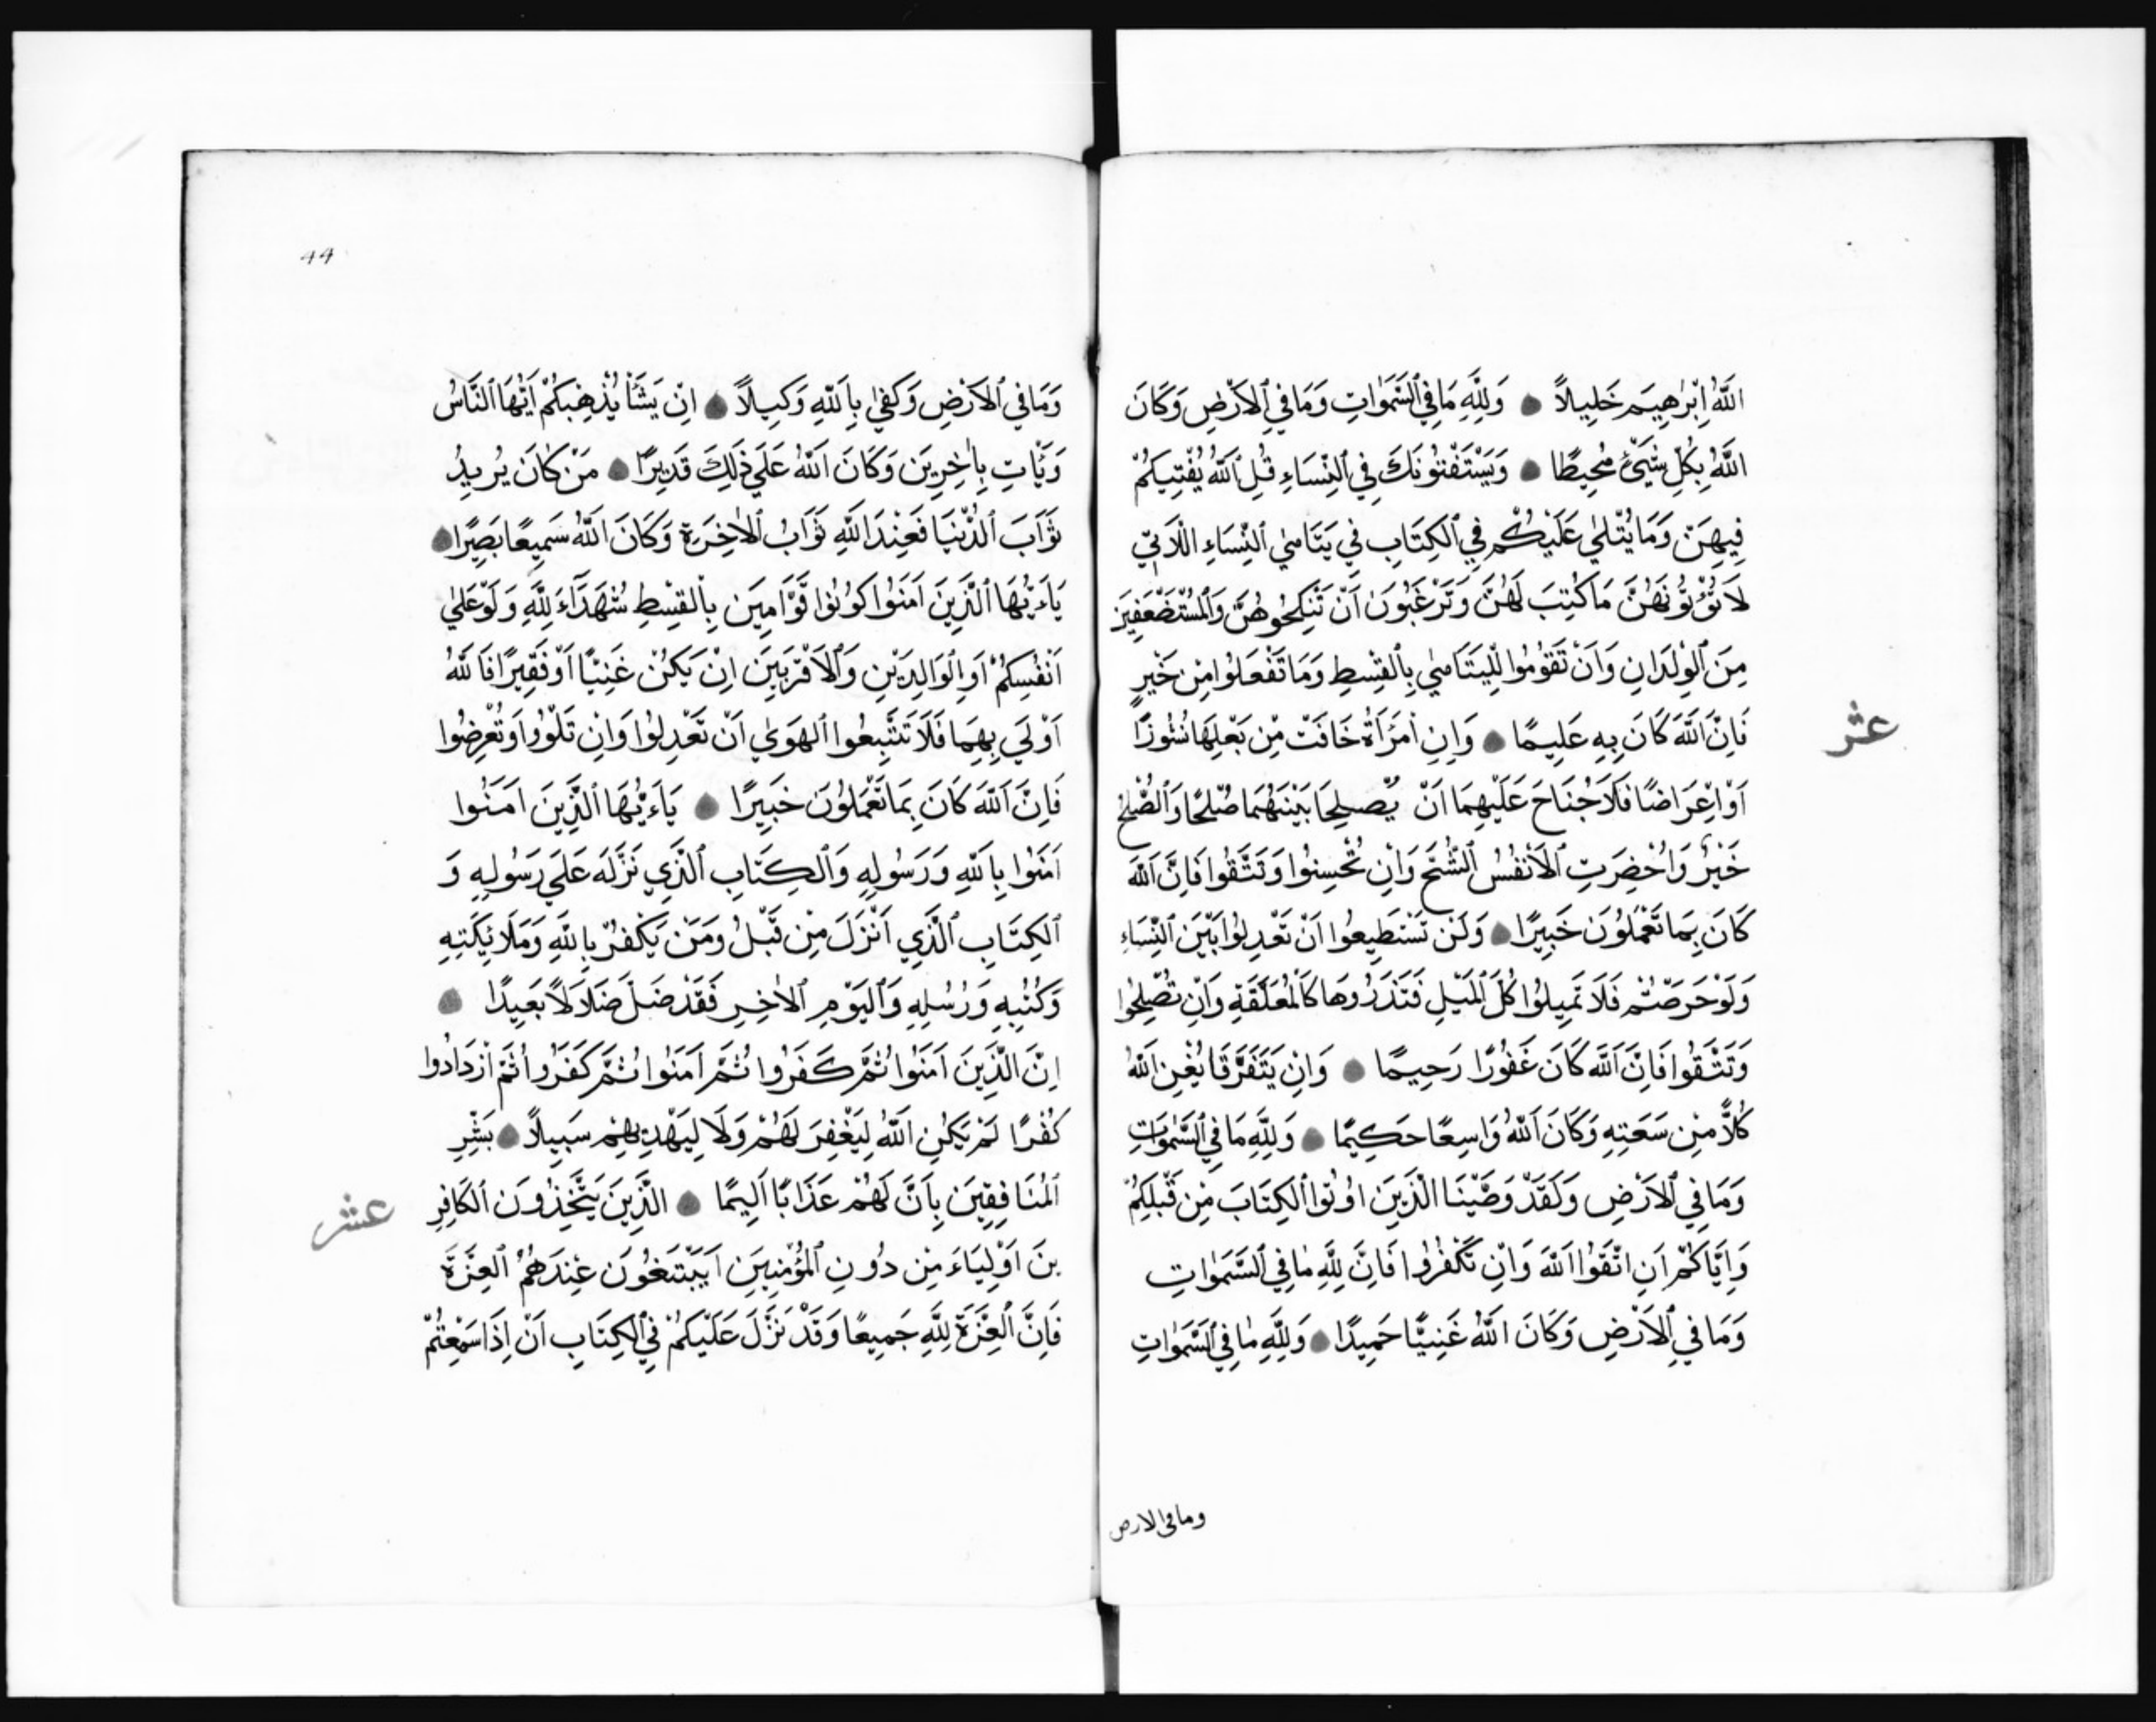 اللَّهُ اِبْرٰهِيمَ خَلِيلاً وَلِلَّهِ مَا فِي السَّمَوَاتِ وَمَا فِي الْاَرْضِ وَكَانَ
اللَّهُ بِكُلِّ شَيْئٍ مُحِيطًا وَيَسْتَفْتُونَكَ فِي النِّسَاءِ قُلِ اللَّهُ يُفْتِيكُمْ
فِيهِنَّ وَمَا يُتْلٰي عَلَيْكُمْ فِي الْكِتَابِ فِي يَتَامٰي النِّسَاءِ اللَّاتِي
لَا تُؤْتُونَهُنَّ مَا كُتِبَ لَهُنَّ وَتَرْغَبُونَ اَنْ تَنْكِحُوهُنَّ وَالْمُسْتَضْعَفِينَ
مِنَ الْوِلْدَانِ وَاَنْ تَقُومُوا لِلْيَتَامٰي بِالْقِسْطِ وَمَا تَفْعَلُوا مِنْ خَيْرٍ
فَاِنَّ اللَّهَ كَانَ بِهِ عَلِيمًا وَاِنِ امْرَأَةٌ خَافَتْ مِنْ بَعْلِهَا نُشُوزًا
عشر
اَوْ اِعْرَاضًا فَلَا جُنَاحَ عَلَيْهِمَا اَنْ يُصْلِحَا بَيْنَهُمَا صُلْحًا وَالصُّلْحُ
خَيْرٌ وَاُحْضِرَتِ الْاَنْفُسُ الشُّحَّ وَاِنْ تُحْسِنُوا وَتَتَّقُوا فَاِنَّ اللَّهَ
كَانَ بِمَا تَعْمَلُونَ خَبِيرًا وَلَنْ تَسْتَطِيعُوا اَنْ تَعْدِلُوا بَيْنَ النِّسَاءِ
وَلَوْ حَرَصْتُمْ فَلَا تَمِيلُوا كُلَّ الْمَيْلِ فَتَذَرُوهَا كَالْمُعَلَّقَةِ وَاِنْ تُصْلِحُوا
وَتَتَّقُوا فَاِنَّ اللَّهَ كَانَ غَفُورًا رَحِيمًا وَاِنْ يَتَفَرَّقَا يُغْنِ اللَّهُ
كُلاًّ مِنْ سَعَتِهِ وَكَانَ اللَّهُ وَاسِعًا حَكِيمًا وَلِلَّهِ مَا فِي السَّمٰوَاتِ
وَمَا فِي الْاَرْضِ وَلَقَدْ وَصَّيْنَا الَّذِينَ اُوتُوا الْكِتَابَ مِنْ قَبْلِكُمْ
وَاِيَّاكُمْ اَنِ اتَّقُوا اللَّهَ وَاِنْ تَكْفُرُوا فَاِنَّ لِلَّهِ مَا فِي السَّمَوٰاتِ
وَمَا فِي الْاَرْضِ وَكَانَ اللَّهُ غَنِيًّا حَمِيدًا وَلِلَّهِ مَا فِي السَّمَوٰاتِ
وما في الارض
44
وَمَا فِي الْاَرْضِ وَكَفٰي بِاللَّهِ وَكِيلاً اِنْ يَشَأْ يُذْهِبْكُمْ اَيُّهَا النَّاسُ
وَيَأْتِ بِاٰخِرِينَ وَكَانَ اللَّهُ عَلَي ذٰلِكَ قَدِيرًا مَنْ كَانَ يُرِيدُ
ثَوَابَ الدُّنْيَا فَعِنْدَ اللَّهِ ثَوَابُ الدُّنْيَا الْاٰخِرَةِ وَكَانَ اللَّهُ سَمِيعًا بَصِيرًا
يَاءَيُّهَا الَّذِينَ اٰمَنُوا كُونُوا قَوَّامِينَ بِالْقِسْطِ شُهَدَآءَ لِلَّهِ وَلَوْ عَلٰي
اَنْفُسِكُمْ اَوِ الْوَالِدَيْنِ وَالْاَقْرَبِينَ اِنْ يَكُنْ غَنِيًّا اَوْ فَقِيرًا فَاللَّهُ
اَوْلَي بِهِمَا فَلَا تَتَّبِعُوا الْهَوٰي اَنْ تَعْدِلُوا وَاِنْ تَلْوُوا اَوْ تُعْرِضُوا
فَاِنَّ اللَّهَ كَانَ بِمَا تَعْمَلُونَ خَبِيرًا يَاءَيُّهَا الَّذِينَ اٰمَنُوا
اٰمَنُوا بِاللَّهِ وَرَسُولِهِ وَالْكِتَابِ الَّذِي نَزَّلَ عَلَي رَسُولِهِ وَ
الْكِتَابِ الَّذِي اَنْزَلَ مِنْ قَبْلُ وَمَنْ يَكْفُرْ بِاللَّهِ وَمَلَائِكَتِهِ
وَكُتُبِهِ وَرُسُلِهِ وَالْيَوْمِ الْاٰخِرِ فَقَدْ ضَلَّ ضَلَالاً بَعِيدًا
اِنَّ الَّذِينَ اٰمَنُوا ثُمَّ كَفَرُوا ثُمَّ اٰمَنُوا ثُمَّ كَفَرُوا ثُمَّ ازْدَادُوا
كُفْرًا لَمْ يَكُنِ اللَّهُ لِيَغْفِرَ لَهُمْ وَلَا لِيَهْدِيَهُمْ سَبِيلاً بَشِّرِ
الْمُنَافِقِينَ بِاَنَّ لَهُمْ عَذَابًا اَلِيمًا الَّذِينَ يَتَّخِذُونَ الْكَافِرِ
عشر
ينَ اَوْلِيَاءَ مِنْ دُونِ الْمُؤْمِنِينَ اَيَبْتَغُونَ عِنْدَهُمُ الْعِزَّةَ
فَاِنَّ الْعِزَّةَ لِلَّهِ جَمِيعًا وَقَدْ نَزَّلَ عَلَيْكُمْ فِي الْكِتَابِ اَنْ اِذَا سَمِعْتُمْ